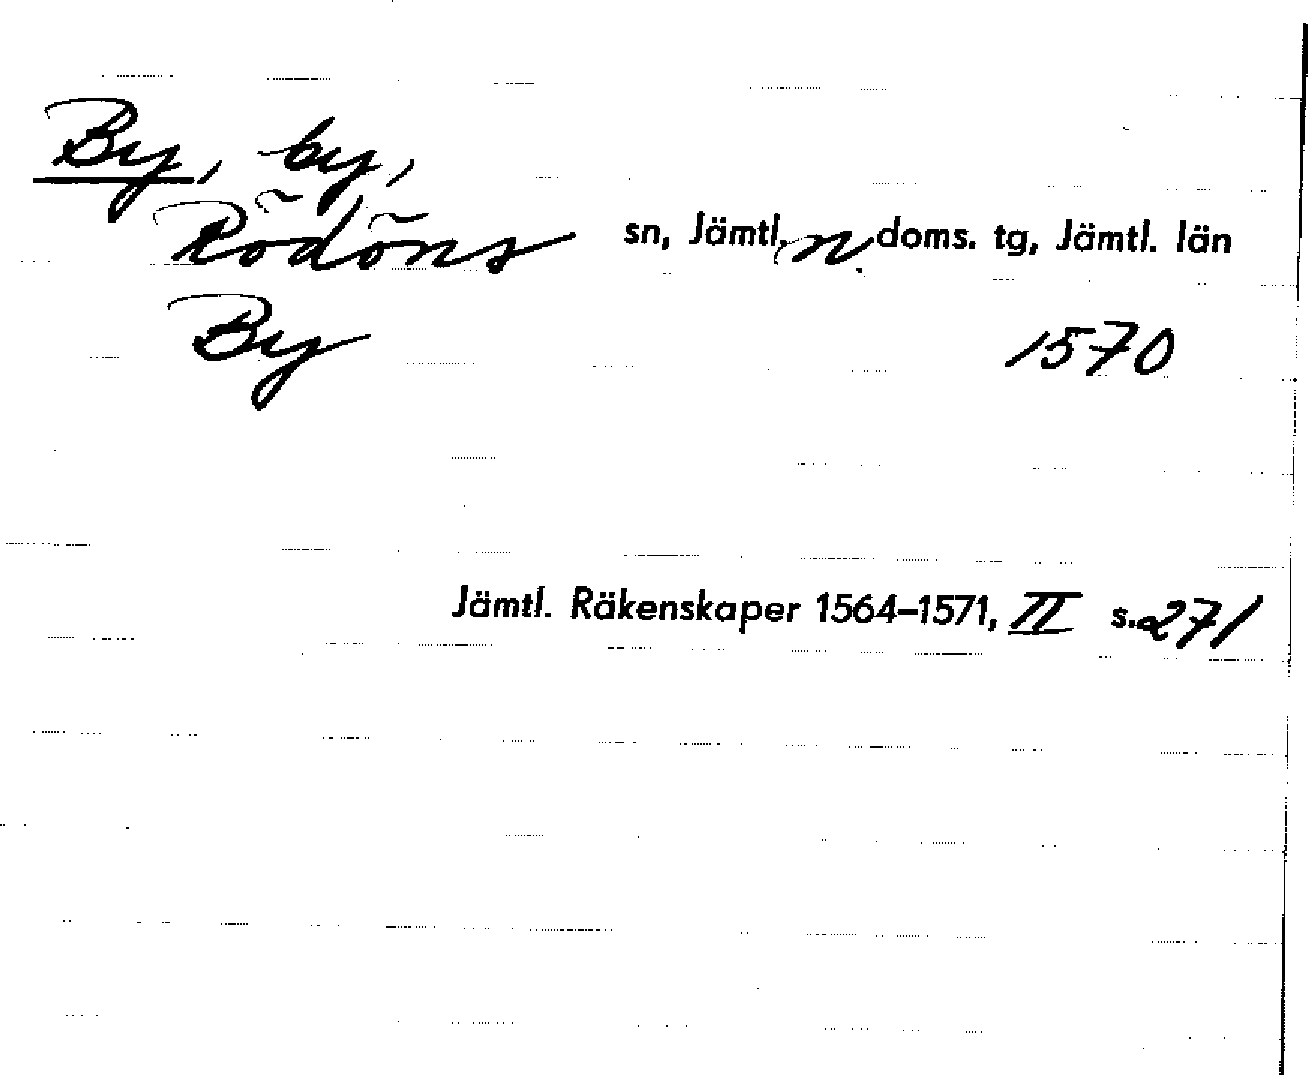 By, by,
Rödöns sn, Jämtl. n. doms. tg, Jämtl. län
By 1570
Jämtl. Räkenskaper 1564–1571, II s. 271